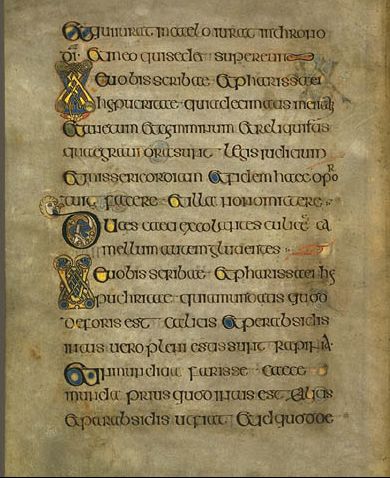 Et qui iurat in caelo iurat in throno
di et in eo qui sedet super eum
Vae vobis scribae et pharissaei
hypucritae quia decimatis mentã
et anetum et cyminum et reliquistis
quae graviora sunt legis iudicium
et missericordiam et fidem haec opor
tuit facere et illa non omittere
Duces caeci excolantes culicẽ ca
mellum autem glutientes
Vae vobis scribae et pharissaei hy
puchritae quia mundatis quod
deforis est calicis et perabsidis
intus vero pleni estis sunt rapinã
et inmunditia farisse caece
munda prius quod intus est calicis
et parabsidis ut fiat et id quod de